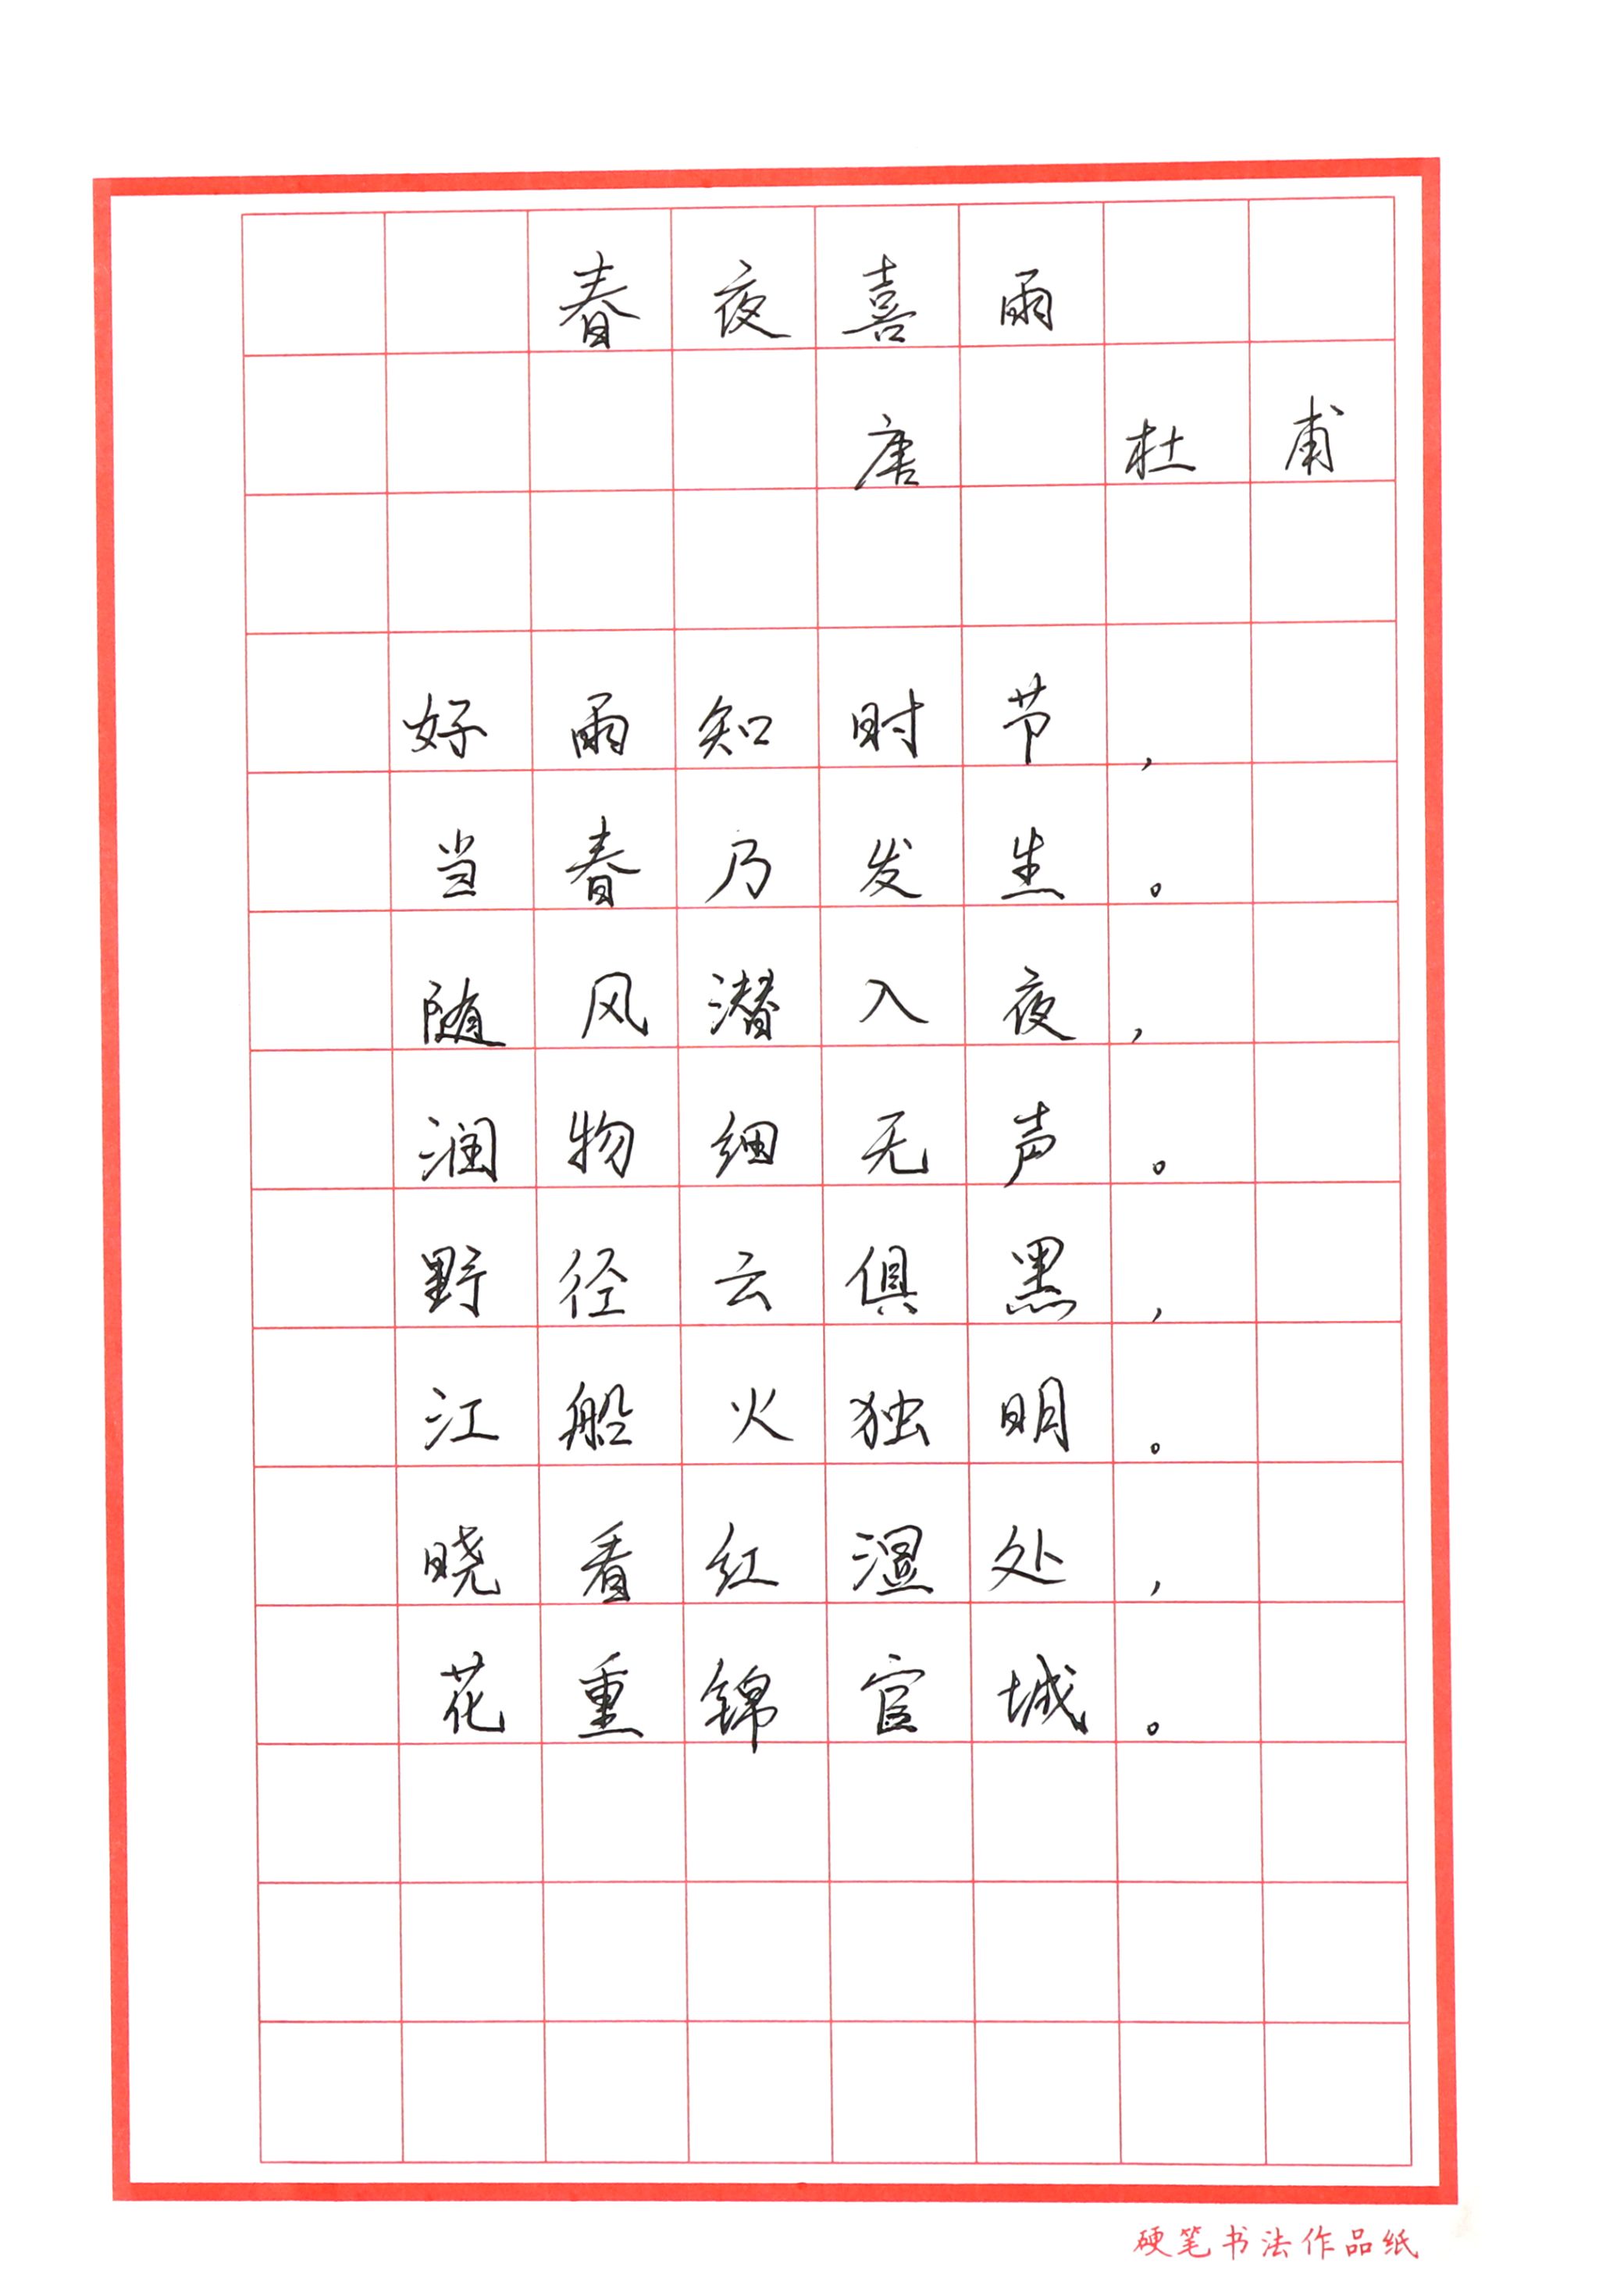 春夜喜雨
唐 杜甫
好雨知时节，
当春乃发生。
随风潜入夜，
润物细无声。
野径云俱黑，
江船火独明。
晓看红湿处，
花重锦官城。
硬笔书法作品纸